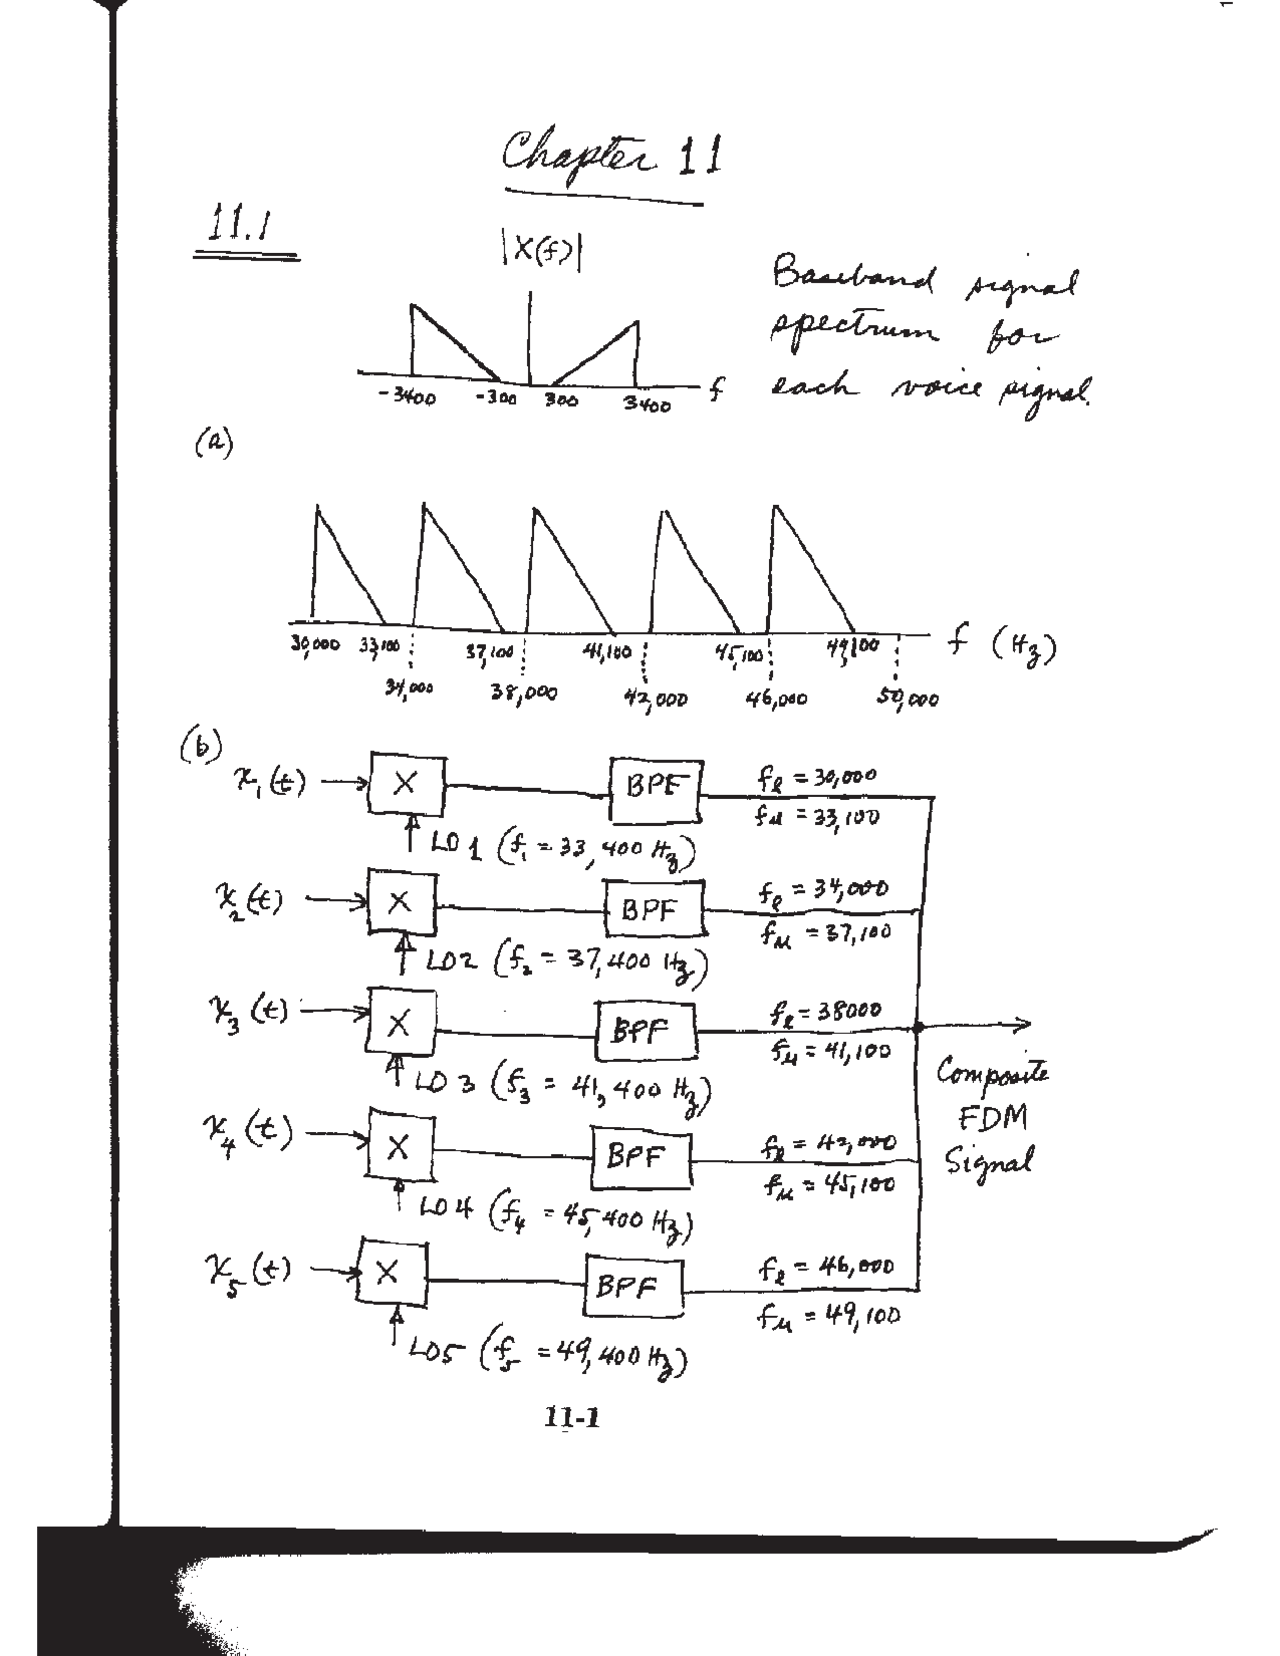 1
Chapter 11
11.1
|X(f)|
Baseband signal
spectrum for
each voice signal.
-3400 -300 300 3400 f
(a)
30,000 33,100 37,100 41,100 45,100 49,100 f (Hz)
34,000 38,000 42,000 46,000 50,000
(b)
x₁(t) X BPF fℓ = 30,000
fu = 33,100
LO1 (f₁ = 33,400 Hz)
x₂(t) X BPF fℓ = 34,000
fu = 37,100
LO2 (f₂ = 37,400 Hz)
x₃(t) X BPF fℓ = 38000
fu = 41,100
LO3 (f₃ = 41,400 Hz)
Composite
FDM
Signal
x₄(t) X BPF fℓ = 42,000
fu = 45,100
LO4 (f₄ = 45,400 Hz)
x₅(t) X BPF fℓ = 46,000
fu = 49,100
LO5 (f₅ = 49,400 Hz)
11-1